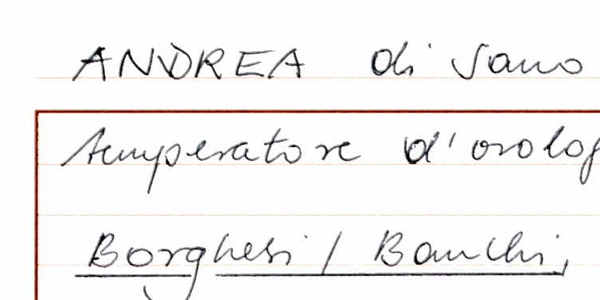 ANDREA di Sano
temperatore d'orolog
Borghesi / Banchi,